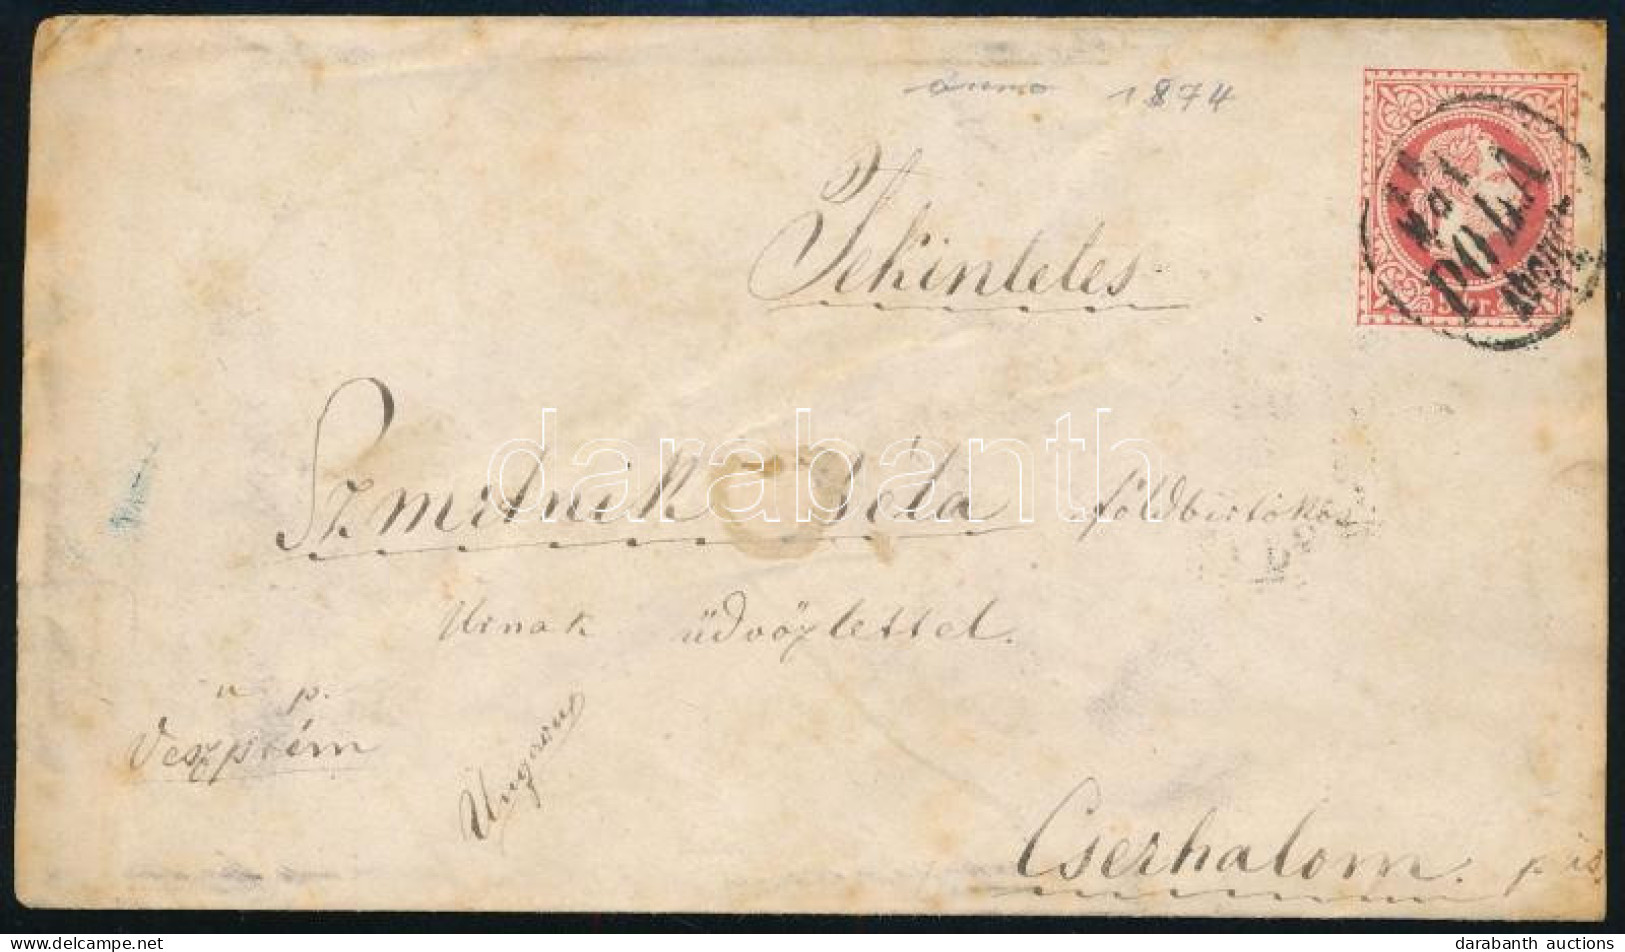 anno 1874
POLA
Tekintetes
Szmrtnik Béla földbirtokos
Urnak üdvözlettel.
u. p.
Veszprém
Ungarn
Cserhalom.
darabanth
darabanth auctions